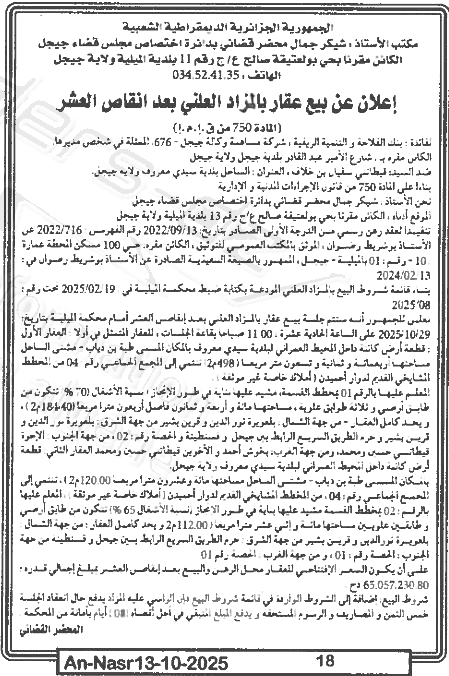 الجمهورية الجزائرية الديمقراطية الشعبية
مكتب الأستاذ : شيكر جمال محضر قضائي بدائرة اختصاص مجلس قضاء جيجل
الكائن مقرنا بحي بولعتيقة صالح ع/ج رقم 11 بلدية الميلية ولاية جيجل
الهاتف : 034.52.41.35
إعلان عن بيع عقار بالمزاد العلني بعد انقاص العشر
(المادة 750 من ق.إ.م.إ)
لفائدة : بنك الفلاحة و التنمية الريفية ، شركة مساهمة وكالة جيجل - 676، الممثلة في شخص مديرها.
الكائن مقره بـ : شارع الأمير عبد القادر بلدية جيجل ولاية جيجل
ضد السيد قيطاني سفيان بن خلاف، العنوان : الساحل بلدية سيدي معروف ولاية جيجل.
بناءا على المادة 750 من قانون الإجراءات المدنية و الإدارية
نحن الأستاذ : شيكر جمال محضر قضائي بدائرة اختصاص مجلس قضاء جيجل
الموقع أدناه ، الكائن مقرنا بحي بولعتيقة صالح ع/ج رقم 13 بلدية الميلية ولاية جيجل
تنفيذا لعقد رهن رسمي من الدرجة الأولى الصادر بتاريخ: 2022/09/13 رقم الفهرس : 2022/716 عن
الأستاذ بوشريط رضوان ، الموثق بالمكتب العمومي للتوثيق ، الكائن مقره حي 100 مسكن المحطة عمارة
10 - رقم : 01 بالميلية - جيجل ، الممهور بالصيغة التنفيذية الصادرة عن الأستاذ بوشريط رضوان في :
2024/02/13
بناء قائمة شروط البيع بالمزاد العلني المودعة بكتابة ضبط محكمة الميلية في 2025/02/19 تحت رقم :
2025/08
نعلن للجمهور أنه ستتم جلسة بيع عقار بالمزاد العلني بعد إنقاص العشر أمام محكمة الميلية بتاريخ:
2025/10/29 على الساعة الحادية عشرة 11.00 صباحا بقاعة الجلسات ، للعقار المتمثل في أولا : العقار الأول
: قطعة أرض كائنة داخل المحيط العمراني لبلدية سيدي معروف بالمكان المسمى طبة بن دياب - مشتى الساحل
مساحتها أربعمائة و ثمانية و تسعون متر مربعا (498م2) تنتمي إلى المجمع الجماعي رقم 04 من المخطط
المشايخي القديم لدوار أحميدن ( أملاك خاصة غير موثقة ) .
المعلم عليها بالرقم 01 بمخطط القسمة، مشيد عليها بناية في طور الإنجاز ( نسبة الأشغال 70% تتكون من
طابق أرضي و ثلاثة طوابق علوية ، مساحتها مائة و أربعة و ثمانون فاصل أربعون مترا مربعا (184.40م2)
و يحد كامل العقار - من جهة الشمال : بلعويرة نور الدين و قرين بشير من جهة الشرق : بلعويرة نور الدين و
قرين بشير و حرم الطريق السريع الرابط بين جيجل و قسنطينة و الحصة رقم : 02 ، من جهة الجنوب : الإخوة
قيطاني حسني ومحمد، ومن جهة الغرب: بخوش أحمد و الأخوين قيطاني حسن ومحمد العقار الثاني: قطعة
أرض كائنة داخل المحيط العمراني لبلدية سيدي معروف ولاية جيجل.
بالمكان المسمى طبة بن دياب - مشتى الساحل مساحتها مائة وعشرون مترا مربعا (120.00م2) ، تنتمي إلى
المجمع الجماعي رقم : 04 ، من المخطط المشايخي القديم لدوار أحميدن ( أملاك خاصة غير موثقة ) ، المعلم عليها
بالرقم : 02 بمخطط القسمة مشيد عليها بناية في طور الانجاز (نسبة الأشغال 65 %) تتكون من طابق أرضي
و طابقين علويين مساحتها مائة و إثني عشر مترا مربعا ( 112.00م2) و يحد كامل العقار : من جهة الشمال :
بلعويرة نور الدين و قرين بشير من جهة الشرق : حرم الطريق السريع الرابط بين جيجل و قسنطينة من جهة
الجنوب : الحصة رقم : 01 ، و من جهة الغرب : الحصة رقم 01
على أن يكون السعر الإفتتاحي للعقار محل الرهن والبيع بعد إنقاص العشر بمبلغ إجمالي قدره :
65.057.230.80 دج
شروط البيع : إضافة إلى الشروط الواردة في قائمة شروط البيع فإن الراسي عليه المزاد يدفع حال انعقاد الجلسة
خمس الثمن و المصاريف و الرسوم المستحقة و يدفع المبلغ المتبقي في أجل أقصاه (08) أيام بأمانة من المحكمة .
المحضر القضائي
An-Nasr13-10-2025
18